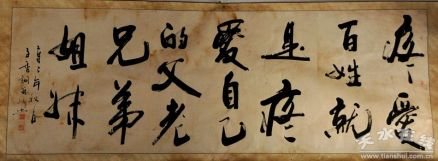 疼愛
百姓就
是疼
愛自己
的父老
兄弟
姐妹
天水在线
www.tianshui.com.cn